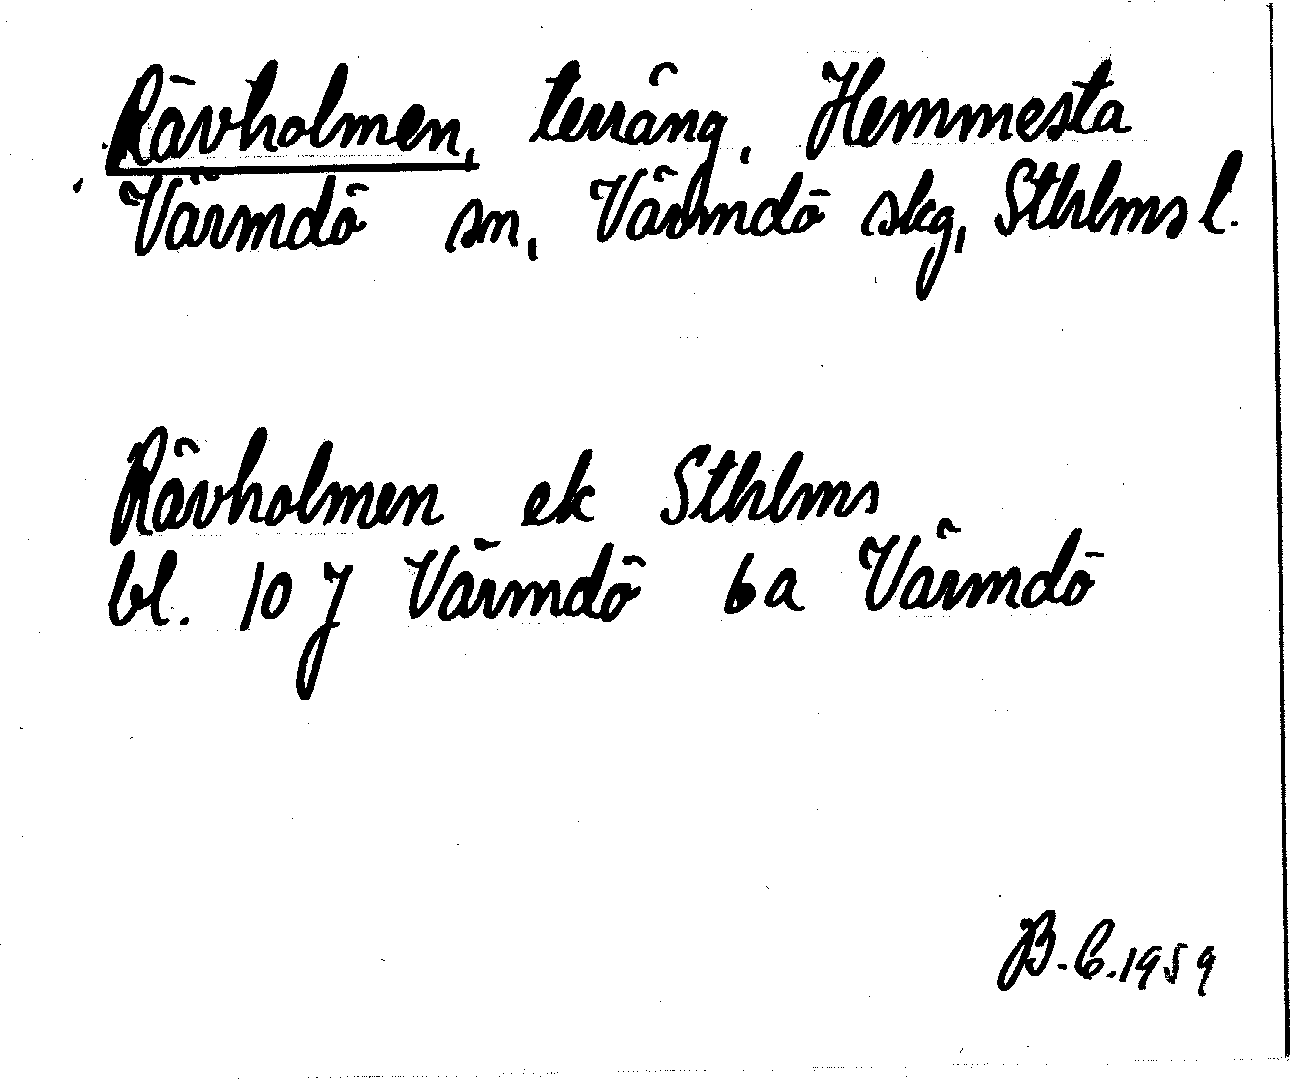 Rävholmen, terräng, Hemmesta
Värmdö sn, Värmdö skg, Sthlms l.
Rävholmen ek Sthlms
bl. 10 J Värmdö 6a Värmdö
B.C.1959